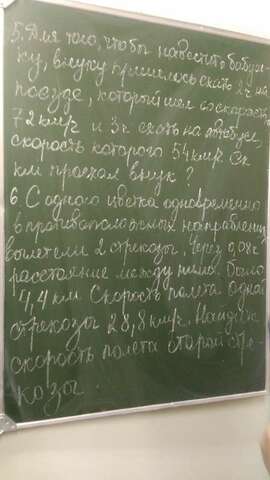 5. Для того, чтобы навестить бабуш-
ку, внуку пришлось ехать 2ч на
поезде, который шел со скоростью
72км/ч и 3ч ехать на автобусе,
скорость которого 54км/ч Ск
км проехал внук?
6 С одного цветка одновременно
в противоположных направлени
вылетели 2 стрекозы. Через 0,08ч
расстояние между ними было
4,4 км. Скорость полета одной
стрекозы 28,8км/ч. Найдите
скорость полета второй стре-
козы.